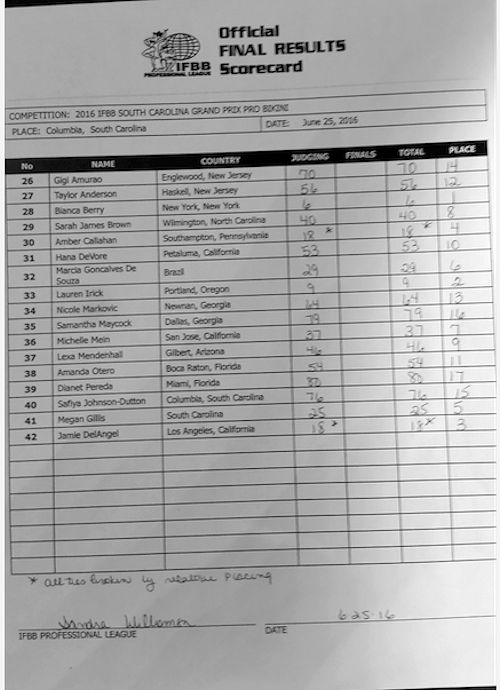 Official
FINAL RESULTS
IFBB Scorecard
PROFESSIONAL LEAGUE
COMPETITION: 2016 IFBB SOUTH CAROLINA GRAND PRIX PRO BIKINI
PLACE: Columbia, South Carolina DATE: June 25, 2016
No NAME COUNTRY JUDGING FINALS TOTAL PLACE
26 Gigi Amurao Englewood, New Jersey 70 70 14
27 Taylor Anderson Haskell, New Jersey 56 56 12
28 Bianca Berry New York, New York 6 6 1
29 Sarah James Brown Wilmington, North Carolina 40 40 8
30 Amber Callahan Southampton, Pennsylvania 18 * 18 * 4
31 Hana DeVore Petaluma, California 53 53 10
32 Marcia Goncalves De Souza Brazil 29 29 6
33 Lauren Irick Portland, Oregon 9 9 2
34 Nicole Markovic Newnan, Georgia 64 64 13
35 Samantha Maycock Dallas, Georgia 79 79 16
36 Michelle Mein San Jose, California 37 37 7
37 Lexa Mendenhall Gilbert, Arizona 46 46 9
38 Amanda Otero Boca Raton, Florida 54 54 11
39 Dianet Pereda Miami, Florida 80 80 17
40 Safiya Johnson-Dutton Columbia, South Carolina 76 76 15
41 Megan Gillis South Carolina 25 25 5
42 Jamie DelAngel Los Angeles, California 18 * 18 * 3
* all ties broken by relative placing
Sandra Williamson 6-25-16
IFBB PROFESSIONAL LEAGUE DATE